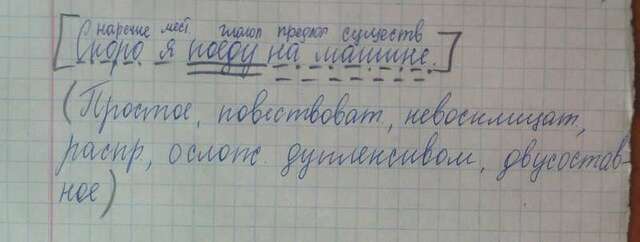 наречие мест. глагол предлог существ
[Скоро я поеду на машине.]
(Простое, повествоват, невосклицат,
распр, ослож. дуплексивом, двусостав-
ное)